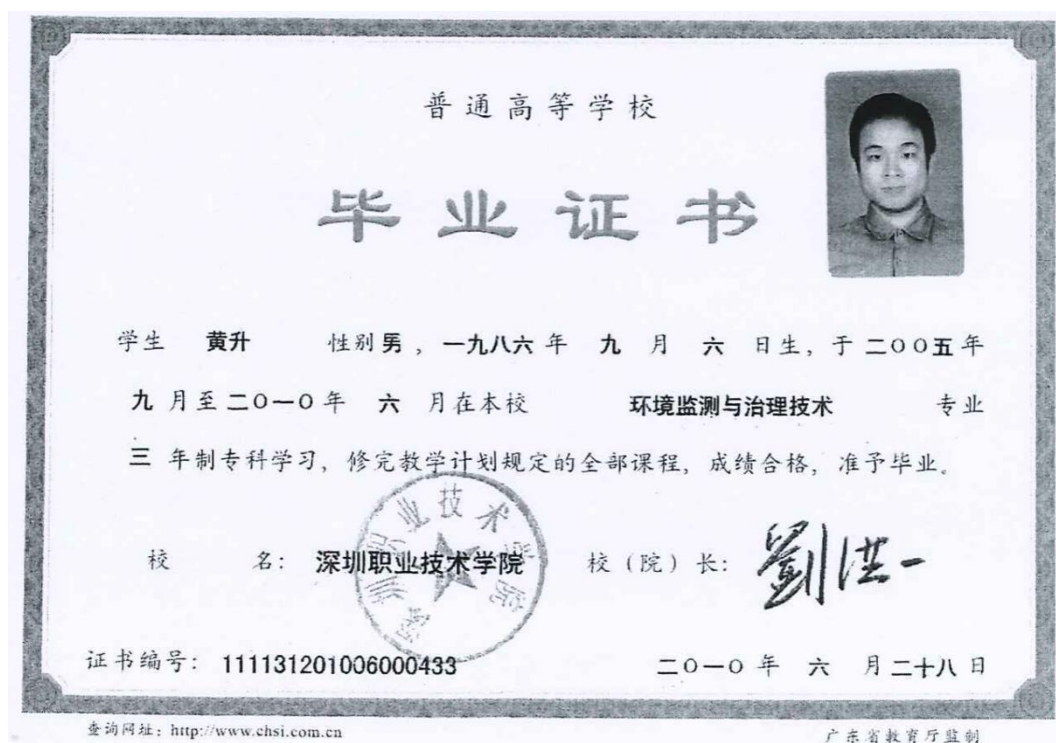 普通高等学校
毕业证书
学生 黄升 性别 男 ，一九八六 年 九 月 六 日生，于 二〇〇五 年
九 月至 二〇一〇 年 六 月在本校 环境监测与治理技术 专业
三 年制专科学习，修完教学计划规定的全部课程，成绩合格，准予毕业。
深圳职业技术学院
校 名： 深圳职业技术学院 校（院）长： 劉洪一
证书编号： 111131201006000433 二〇一〇 年 六 月 二十八 日
查询网址：http://www.chsi.com.cn 广东省教育厅监制